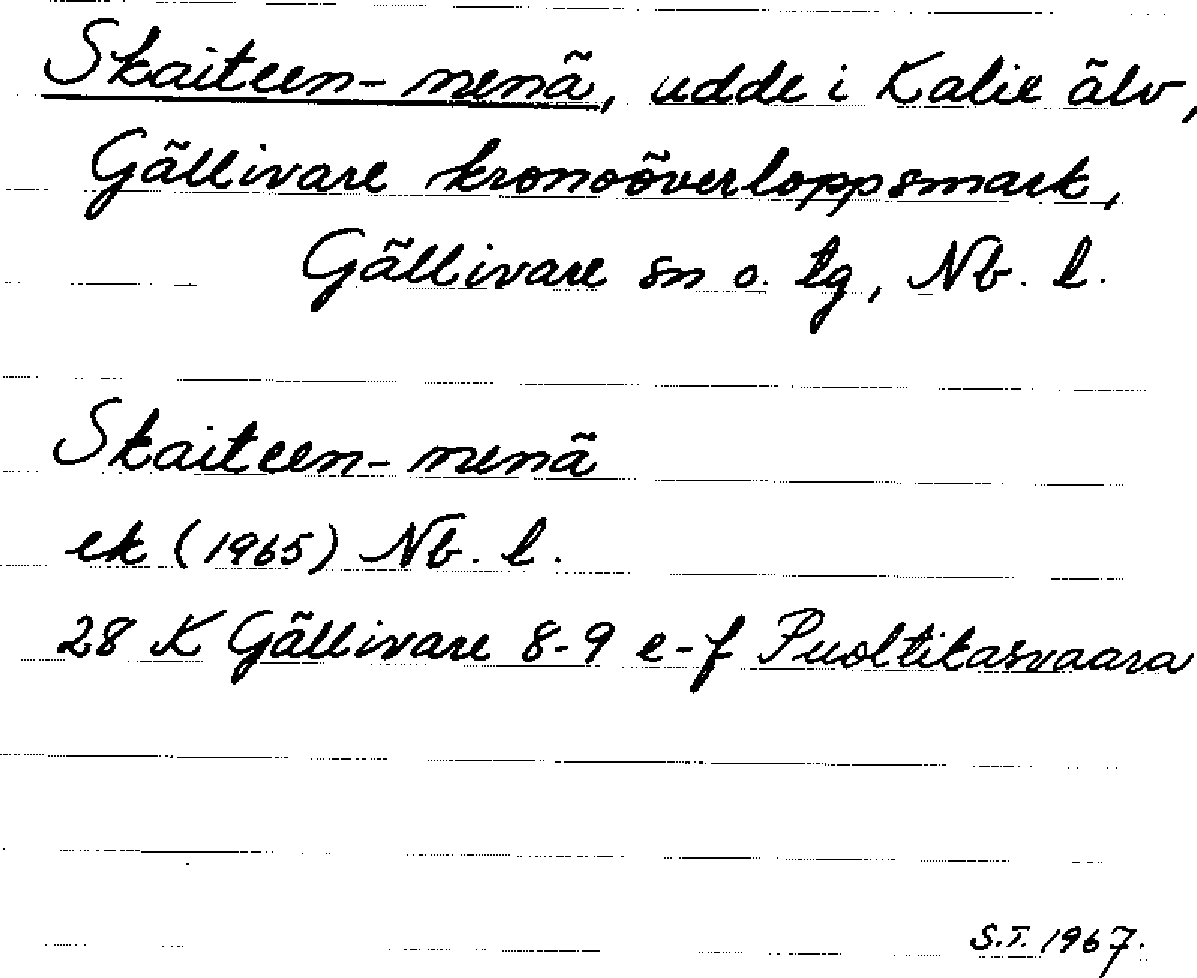 Skaiteen-nenä, udde i Kalix älv,
Gällivare kronoöverloppsmark,
Gällivare sn o. tg, Nb. l.
Skaiteen-nenä
ek (1965) Nb. l.
28 K Gällivare 8-9 e-f Puoltikasvaara
S.T. 1967.